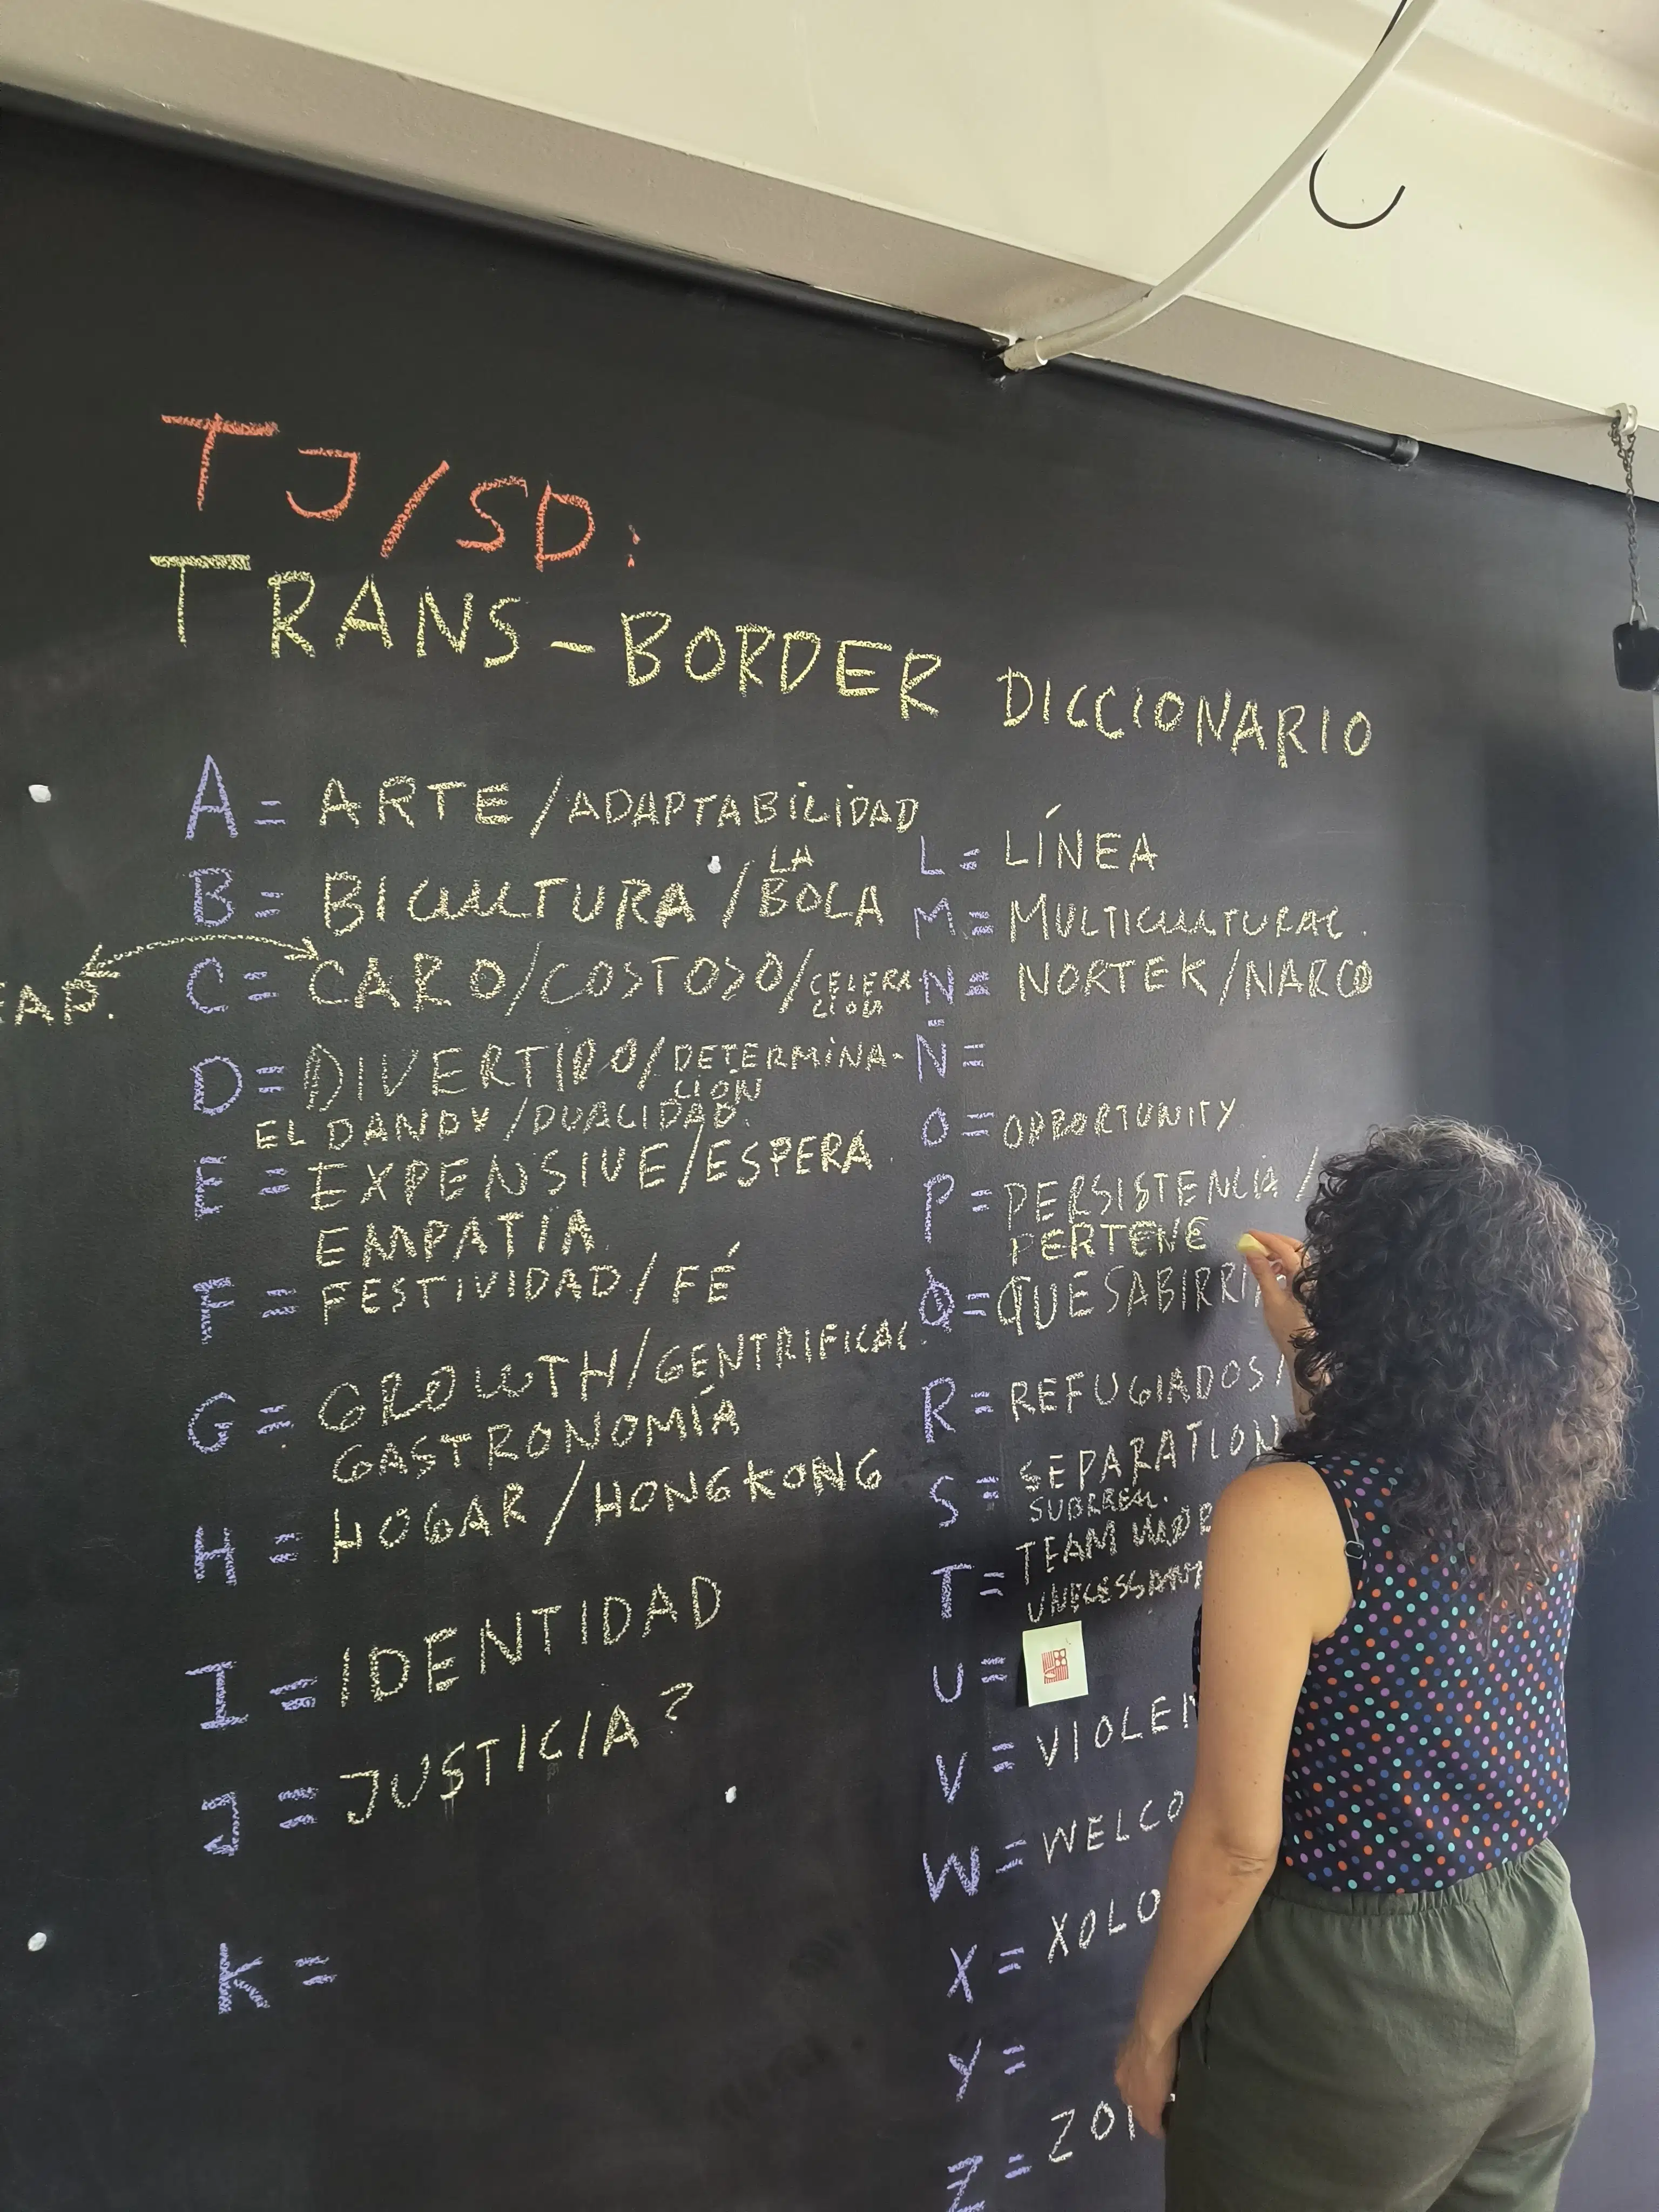 TJ/SD:
TRANS-BORDER DICCIONARIO
A = ARTE/ADAPTABILIDAD
B = BICULTURA / LA BOLA
C = CARO/COSTOSO/CELERA
EAP.
D = DIVERTIDO/DETERMINA-
CIÓN
EL DANDY/DUALIDAD.
E = EXPENSIVE/ESPERA
EMPATÍA.
F = FESTIVIDAD/FÉ
G = GROWTH/GENTRIFICAC.
GASTRONOMÍA
H = HOGAR/HONGKONG
I = IDENTIDAD
J = JUSTICIA?
K =
L = LÍNEA
M = MULTICULTURAL.
N = NORTEK/NARCO
Ñ =
O = OPPORTUNITY
P = PERSISTENCIA/
PERTENE
Q = QUESABIRRI
R = REFUGIADOS/
S = SEPARATION
SURREAL.
T = TEAM
UNECESSARY
U =
V = VIOLEN
W = WELCO
X = XOLO
Y =
Z = ZON